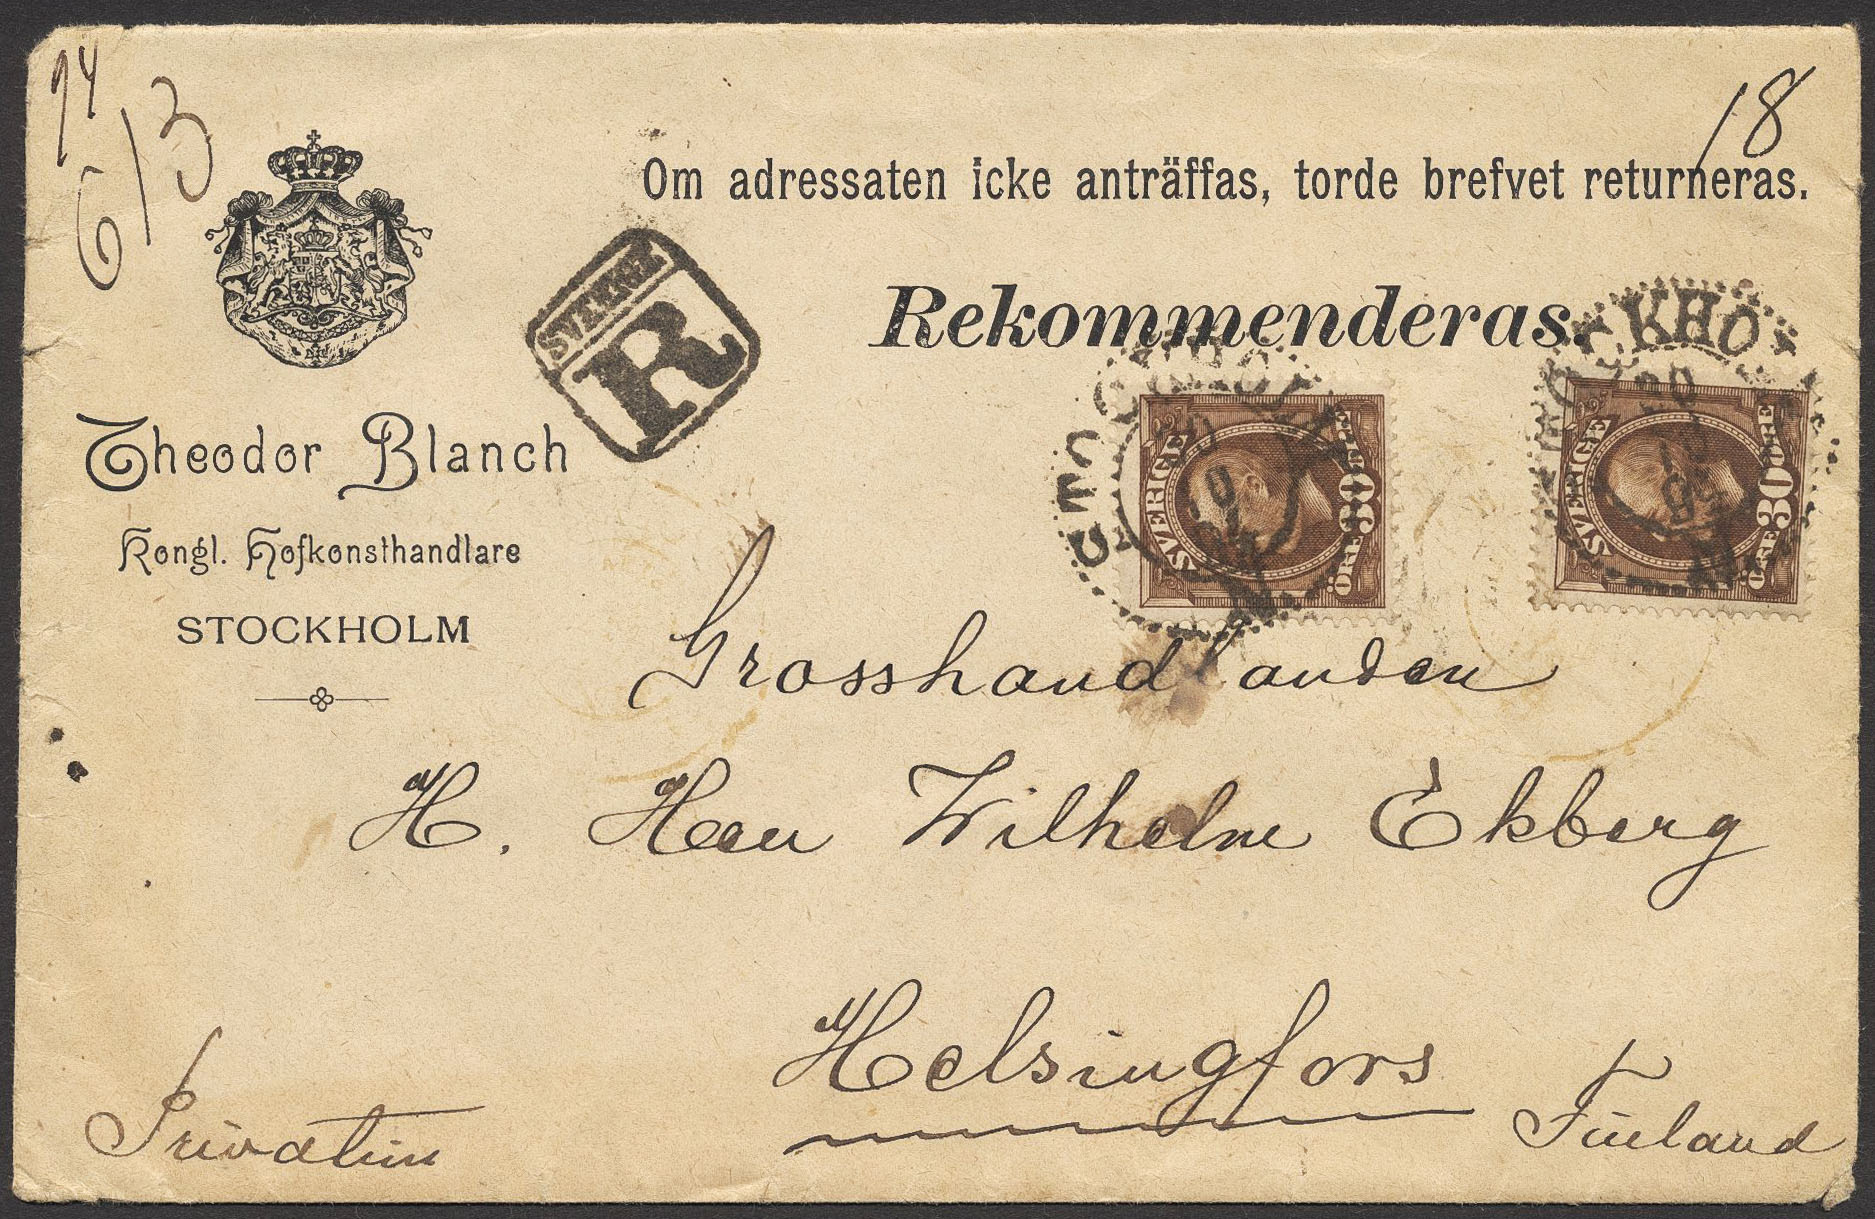 74
613
18
Om adressaten icke anträffas, torde brefvet returneras.
SVERIGE
R
Rekommenderas.
STOCKHO
SVERIGE
30
ÖRE
SVERIGE
30
ÖRE
Theodor Blanch
Kongl. Hofkonsthandlare
STOCKHOLM
Grosshandlanden
H. Herr Wilhelm Ekberg
Helsingfors
Finland
Privatim